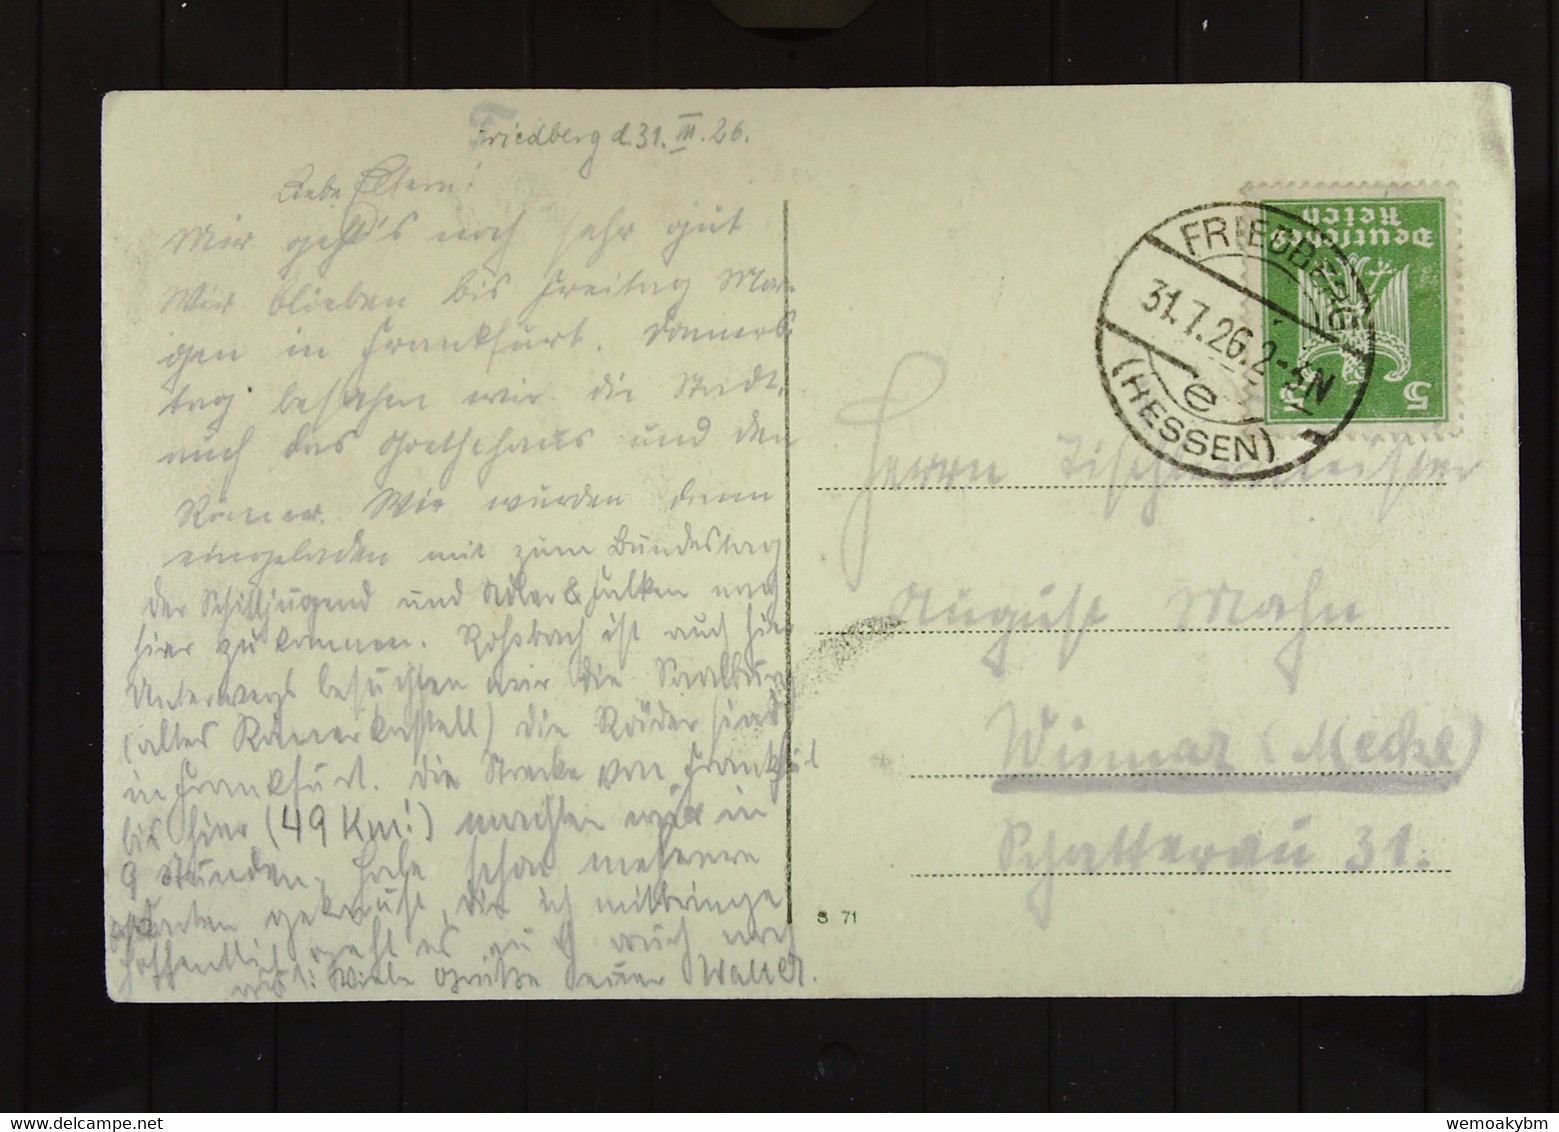 Friedberg d. 31. III. 26.
Liebe Eltern!
Mir geht's noch sehr gut
Wir blieben bis Freitag Mor-
gen in Frankfurt. Donners-
tag besahen wir die Stadt,
auch das Goethehaus und den
Römer. Wir wurden dann
eingeladen mit zum Bundestag
der Schilljugend und Adler & Falken nach
hier zu kommen. Roßbach ist auch hier
Unterwegs besuchten wir die Saalburg
(altes Römerkastell) die Räder sind
in Frankfurt. Die Strecke von Frankfurt
bis hier (49 Km!) machten wir in
9 Stunden. Habe schon mehrere
Karten gekauft, die ich mitbringe
hoffentlich geht es zu H auch noch
gut! Viele Grüße euer Walter.
FRIEDBERG
31.7.26.2-3N
e
(HESSEN)
Deutsches
Reich
5 5
Herrn Tischlermeister
August Mahn
Wismar (Meckl)
Schatterau 31.
S 71
www.delcampe.net
wemoakybm